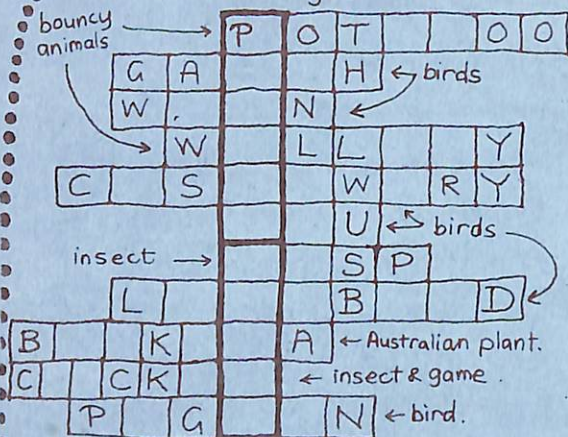 bouncy
animals
P O T O O
G A H
birds
W N
W L L Y
C S W R Y
U
birds
insect
S P
L B D
B K A
Australian plant.
C C K
insect & game.
P G N
bird.